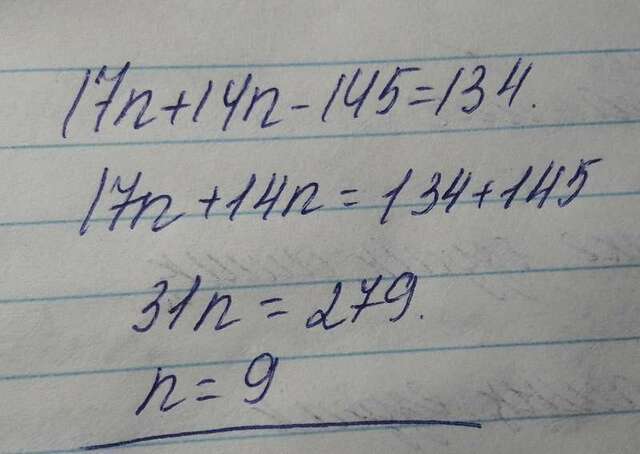 17n+14n-145=134.
17n+14n=134+145
31n=279.
n=9